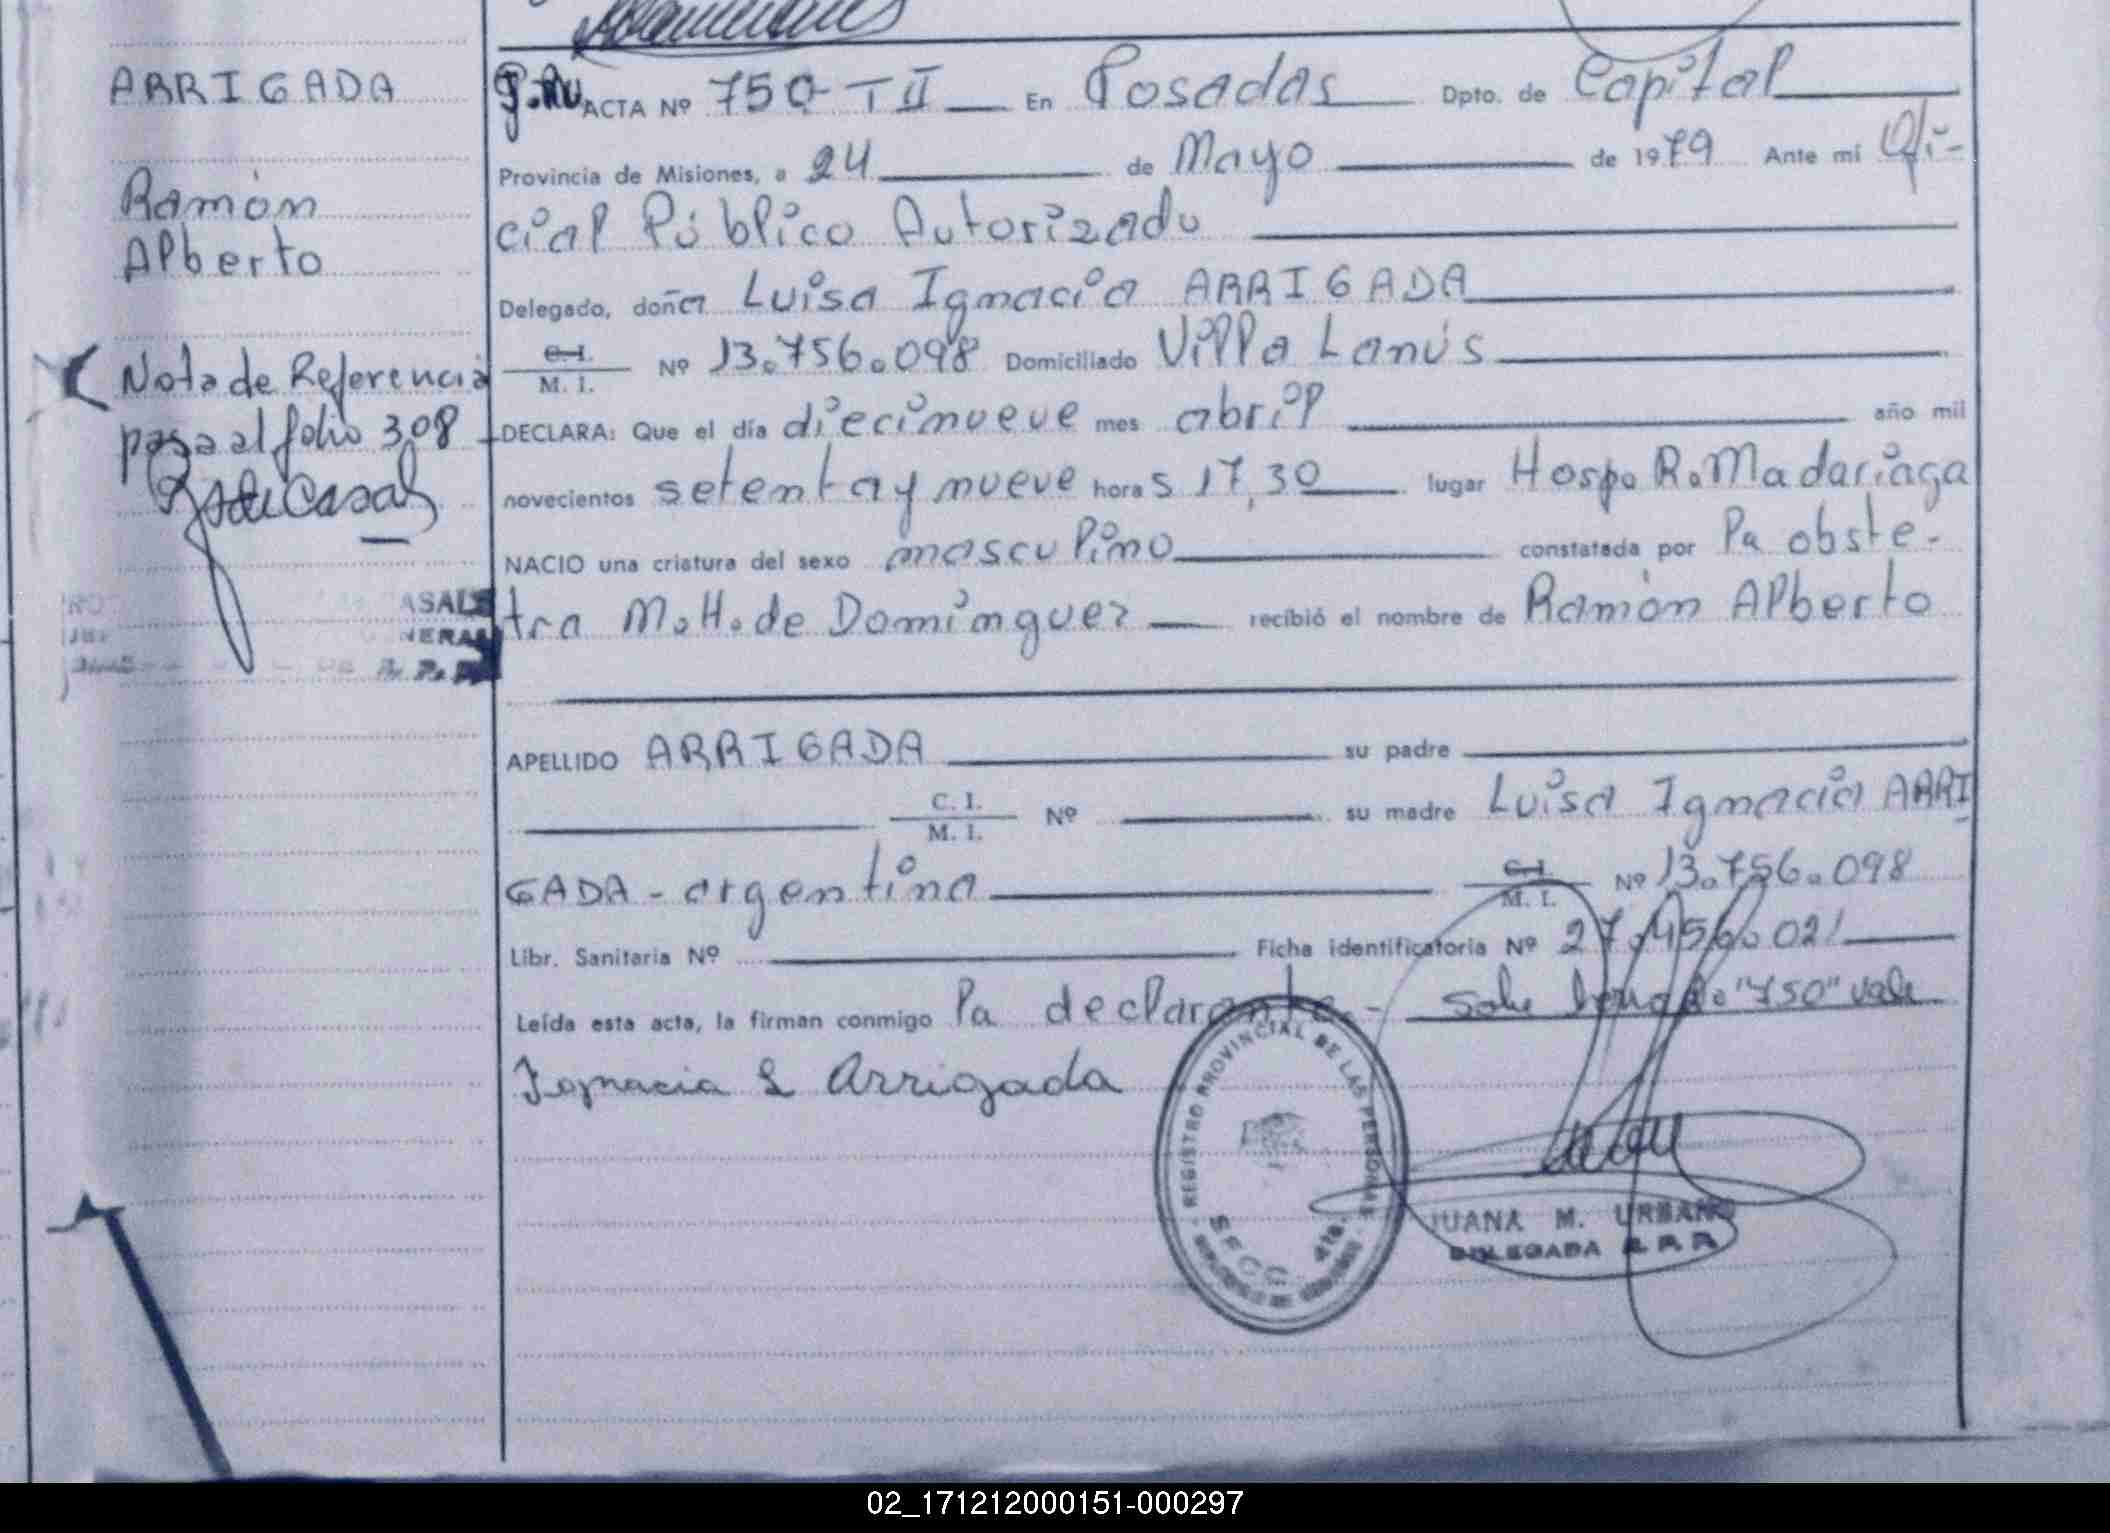 ARRIGADA
Ramón
Alberto
Nota de Referencia
pasa al folio 308
ASALE
NERAL
ACTA Nº 750-TII En Posadas Dpto. de Capital
Provincia de Misiones, a 24 de Mayo de 1979 Ante mí Ofi-
cial Público Autorizado
Delegado, doña Luisa Ignacia ARRIGADA
C.I.
M. I. Nº 13.756.098 Domiciliado Villa Lanús
DECLARA: Que el día diecinueve mes abril año mil
novecientos setenta y nueve horas 17,30 lugar Hosp. R. Madariaga
NACIO una criatura del sexo masculino constatada por la obste-
tra M.H. de Domínguez recibió el nombre de Ramón Alberto
APELLIDO ARRIGADA su padre
C. I.
M. I. Nº su madre Luisa Ignacia ARRI
GADA - argentina C.I.
M. I. Nº 13.756.098
Libr. Sanitaria Nº Ficha identificatoria Nº 27.456.021
Leída esta acta, la firman conmigo la declarante.- "750" vale
Ignacia L Arrigada
REGISTRO PROVINCIAL DE LAS PERSONAS
JUANA M. URBANO
DELEGADA R. P. P.
02_171212000151-000297